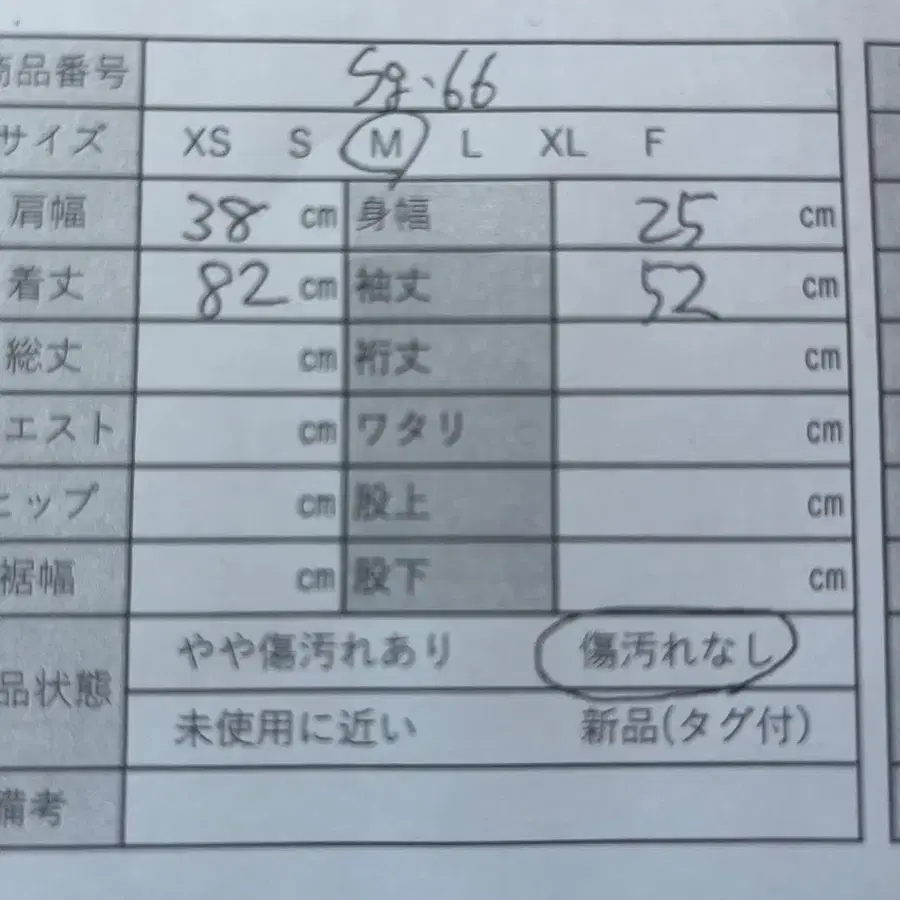 商品番号 Sg.66
サイズ XS S M L XL F
肩幅 38 cm 身幅 25 cm
着丈 82 cm 袖丈 52 cm
総丈 cm 裄丈 cm
エスト cm ワタリ cm
ヒップ cm 股上 cm
裾幅 cm 股下 cm
やや傷汚れあり 傷汚れなし
品状態
未使用に近い 新品(タグ付)
備考